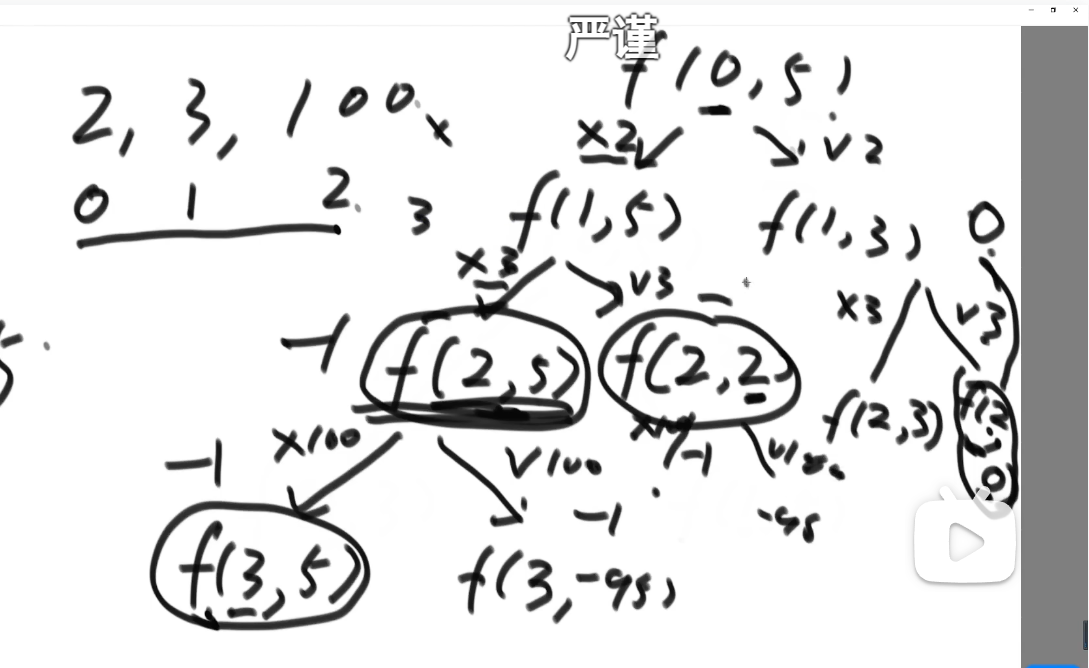 严谨
f(0,5)
2, 3, 100
x2 v2
0 1 2 3
f(1,5) f(1,3) 0
x3 v3 x3 v3
-1 f(2,5) f(2,2) f(2,3) f(2,0)
-1 x100 v100 -1 v100
-1 -98
f(3,5) f(3,-95)